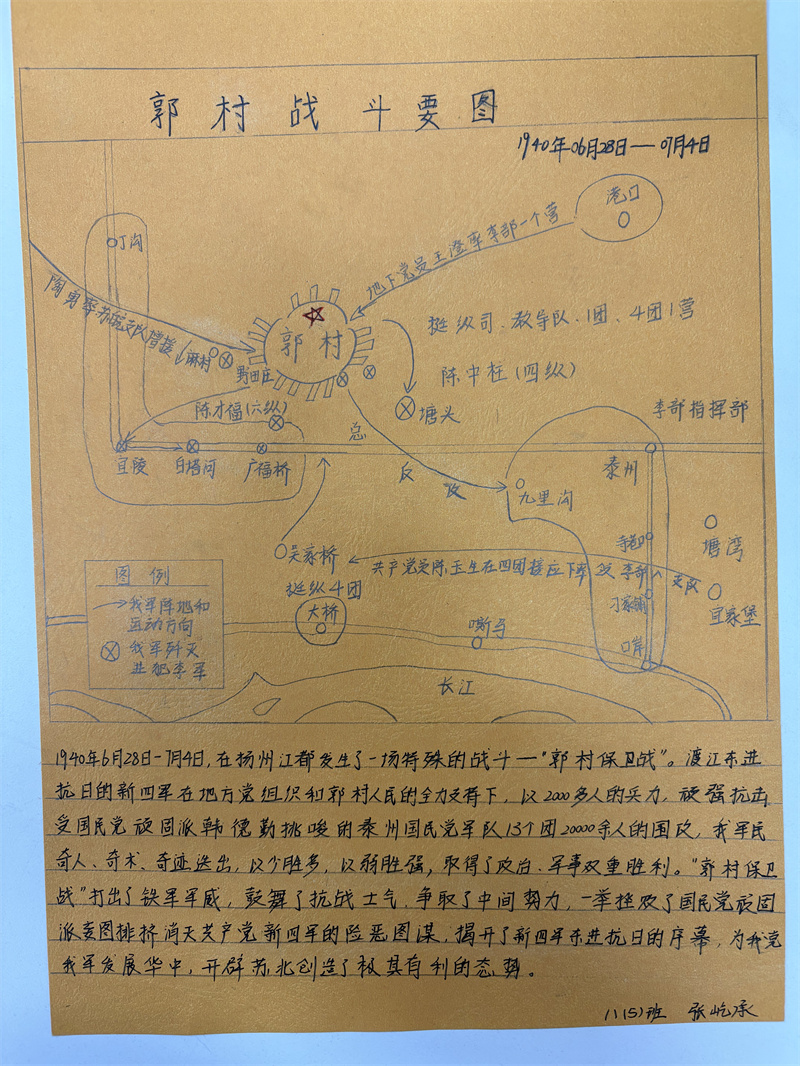 郭村战斗要图
1940年06月28日—07月4日
港口
丁沟
地下党员王澄率李部一个营
陶勇率苏皖支队增援
麻村
野田庄
郭村
挺纵司、教导队、1团、4团1营
陈中柱(四纵)
塘头
陈才福(六纵)
李部指挥部
总
反
攻
宜陵
白塔河
广福桥
泰州
九里沟
寺巷
塘湾
吴家桥
挺纵4团
共产党员陈玉生在四团接应下率
李部
支队
刁家铺
宜家堡
大桥
嘶马
口岸
长江
图例
我军阵地和
运动方向
我军歼灭
进犯李军
1940年6月28日-7月4日,在扬州江都发生了一场特殊的战斗—"郭村保卫战"。渡江东进
抗日的新四军在地方党组织和郭村人民的全力支持下,以2000多人的兵力,顽强抗击
受国民党顽固派韩德勤挑唆的泰州国民党军队13个团20000余人的围攻,我军民
奇人、奇术、奇迹迭出,以少胜多,以弱胜强,取得了政治、军事双重胜利。"郭村保卫
战"打出了铁军军威,鼓舞了抗战士气,争取了中间势力,一举挫败了国民党顽固
派妄图排挤消灭共产党新四军的险恶图谋,揭开了新四军东进抗日的序幕,为我党
我军发展华中,开辟苏北创造了极其有利的态势。
八(5)班 张屹承